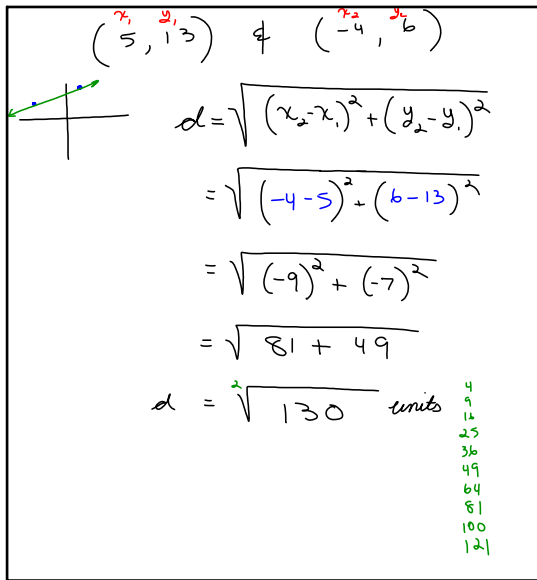 x₁ y₁ x₂ y₂
(5, 13) & (-4, 6)
d = √((x₂-x₁)² + (y₂-y₁)²)
= √((-4-5)² + (6-13)²)
= √((-9)² + (-7)²)
= √(81 + 49)
d = ²√130 units
4
9
16
25
36
49
64
81
100
121